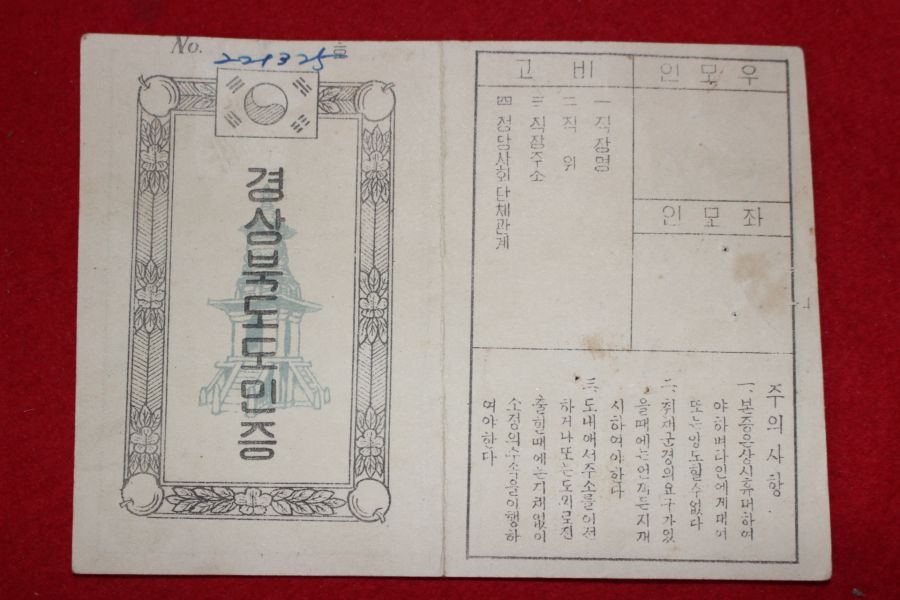 No. 221325 호
경상북도도민증
우모인
좌모인
비고
一 직장명
二 직위
三 직장주소
四 정당사회단체관계
주의사항
一. 본증은상시휴대하여
야하며타인에게대여
또는양도할수없다
二. 취체군경의요구가있
을때에는언제든지재
시하여야하다
三. 도내애서주소를이전
하거나또는도외로전
출할때에는지체없이
소정의수속을이행하
여야한다